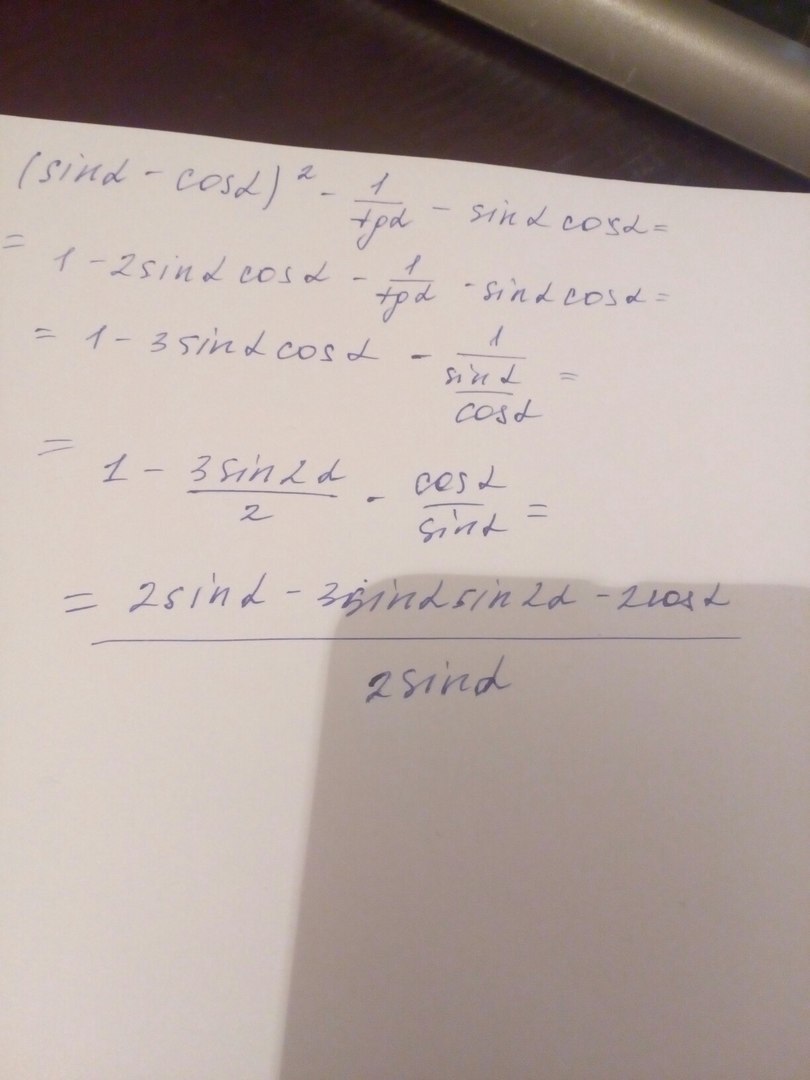 (sinα - cosα)² - 1/tgα - sinα cosα =
= 1 - 2sinα cosα - 1/tgα - sinα cosα =
= 1 - 3sinα cosα - 1/(sinα/cosα) =
= 1 - 3sin2α/2 - cosα/sinα =
= (2sinα - 3sinα sin2α - 2cosα)/(2sinα)